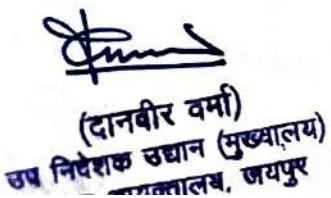 (दानवीर वर्मा)
उप निदेशक उद्यान (मुख्यालय)
जयपुर